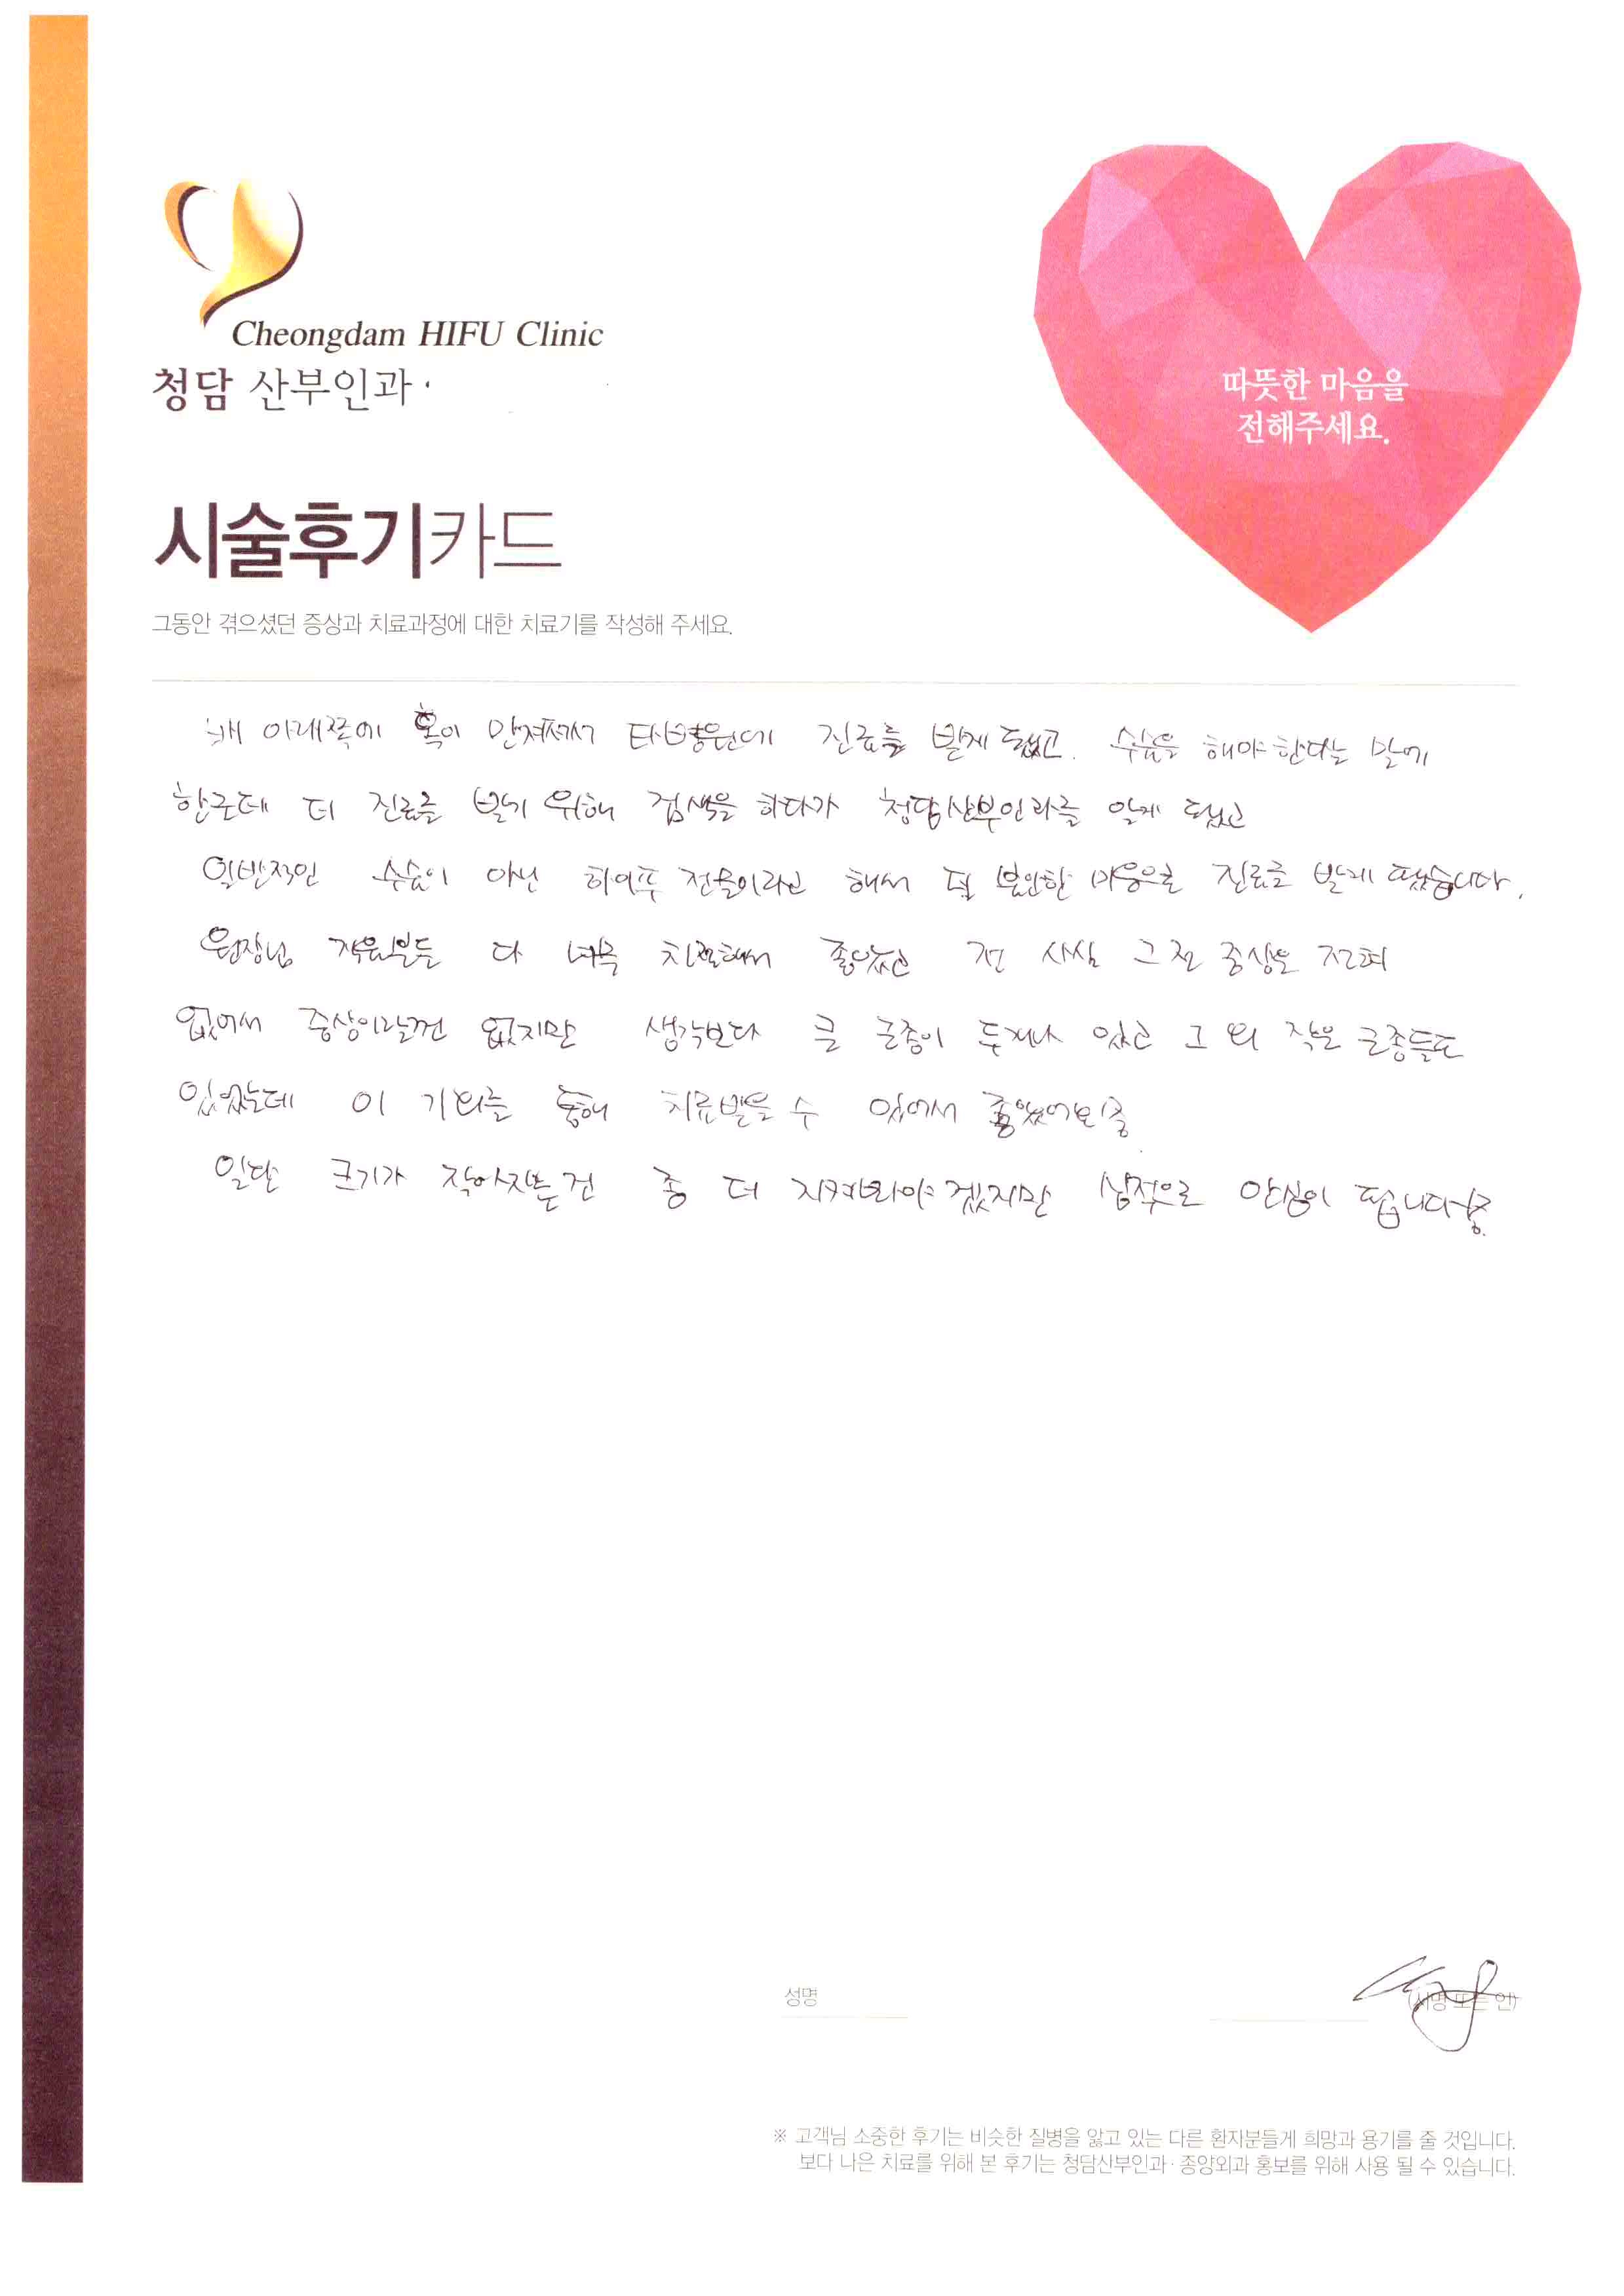 Cheongdam HIFU Clinic
청담 산부인과 ·
따뜻한 마음을
전해주세요.
시술후기카드
그동안 겪으셨던 증상과 치료과정에 대한 치료기를 작성해 주세요.
배 아래쪽에 혹이 만져져서 타병원에 진료를 받게 됐고. 수술을 해야한다는 말에
한군데 더 진료를 받기 위해 검색을 하다가 청담산부인과를 알게 됐고
일반적인 수술이 아닌 하이푸 전문이라고 해서 덜 불안한 마음으로 진료를 받게 됐습니다.
원장님 직원분들 다 너무 친절해서 좋았고 전 사실 그 전 증상은 전혀
없어서 증상이랄껀 없지만 생각보다 큰 근종이 두개나 있고 그 외 작은 근종들도
있었는데 이 기회를 통해 치료받을 수 있어서 좋았어요
일단 크기가 작아지는건 좀 더 지켜봐야겠지만 심적으로 안심이 됩니다
성명
(서명 또는 인)
※ 고객님 소중한 후기는 비슷한 질병을 앓고 있는 다른 환자분들게 희망과 용기를 줄 것입니다.
보다 나은 치료를 위해 본 후기는 청담산부인과 · 종양외과 홍보를 위해 사용 될 수 있습니다.